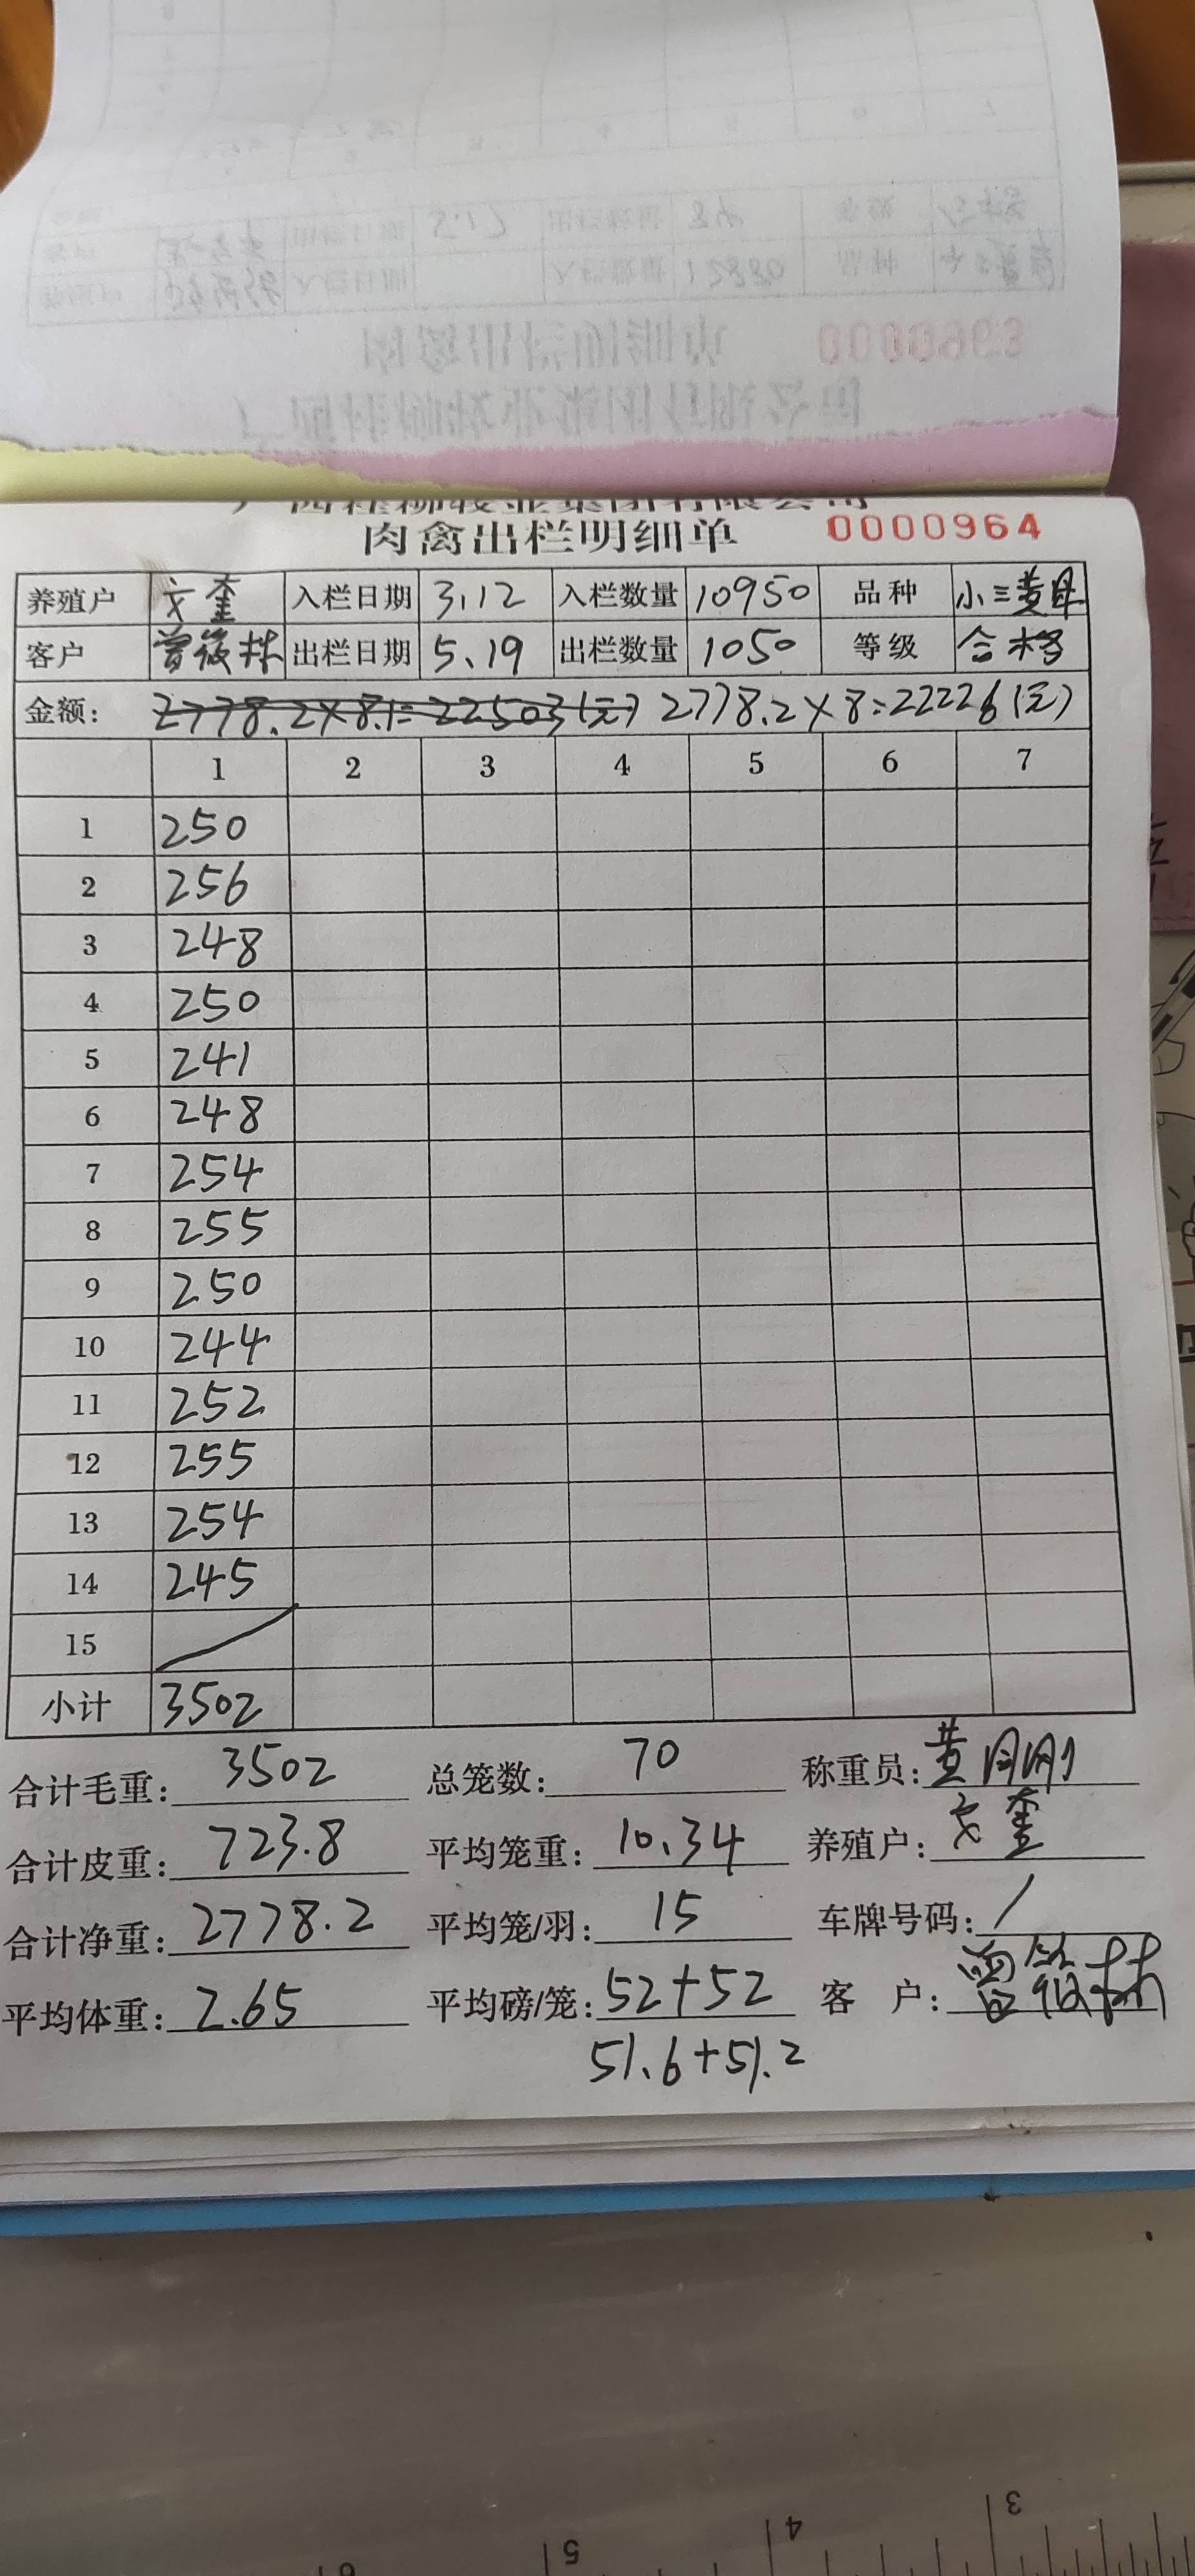 肉禽出栏明细单 0000964
养殖户 文奎 入栏日期 3.12 入栏数量 10950 品种 小三黄母
客户 出栏日期 5.19 出栏数量 1050 等级 合格
金额: 2778.2×8.1=22503(元) 2778.2×8=22226(元)
1 2 3 4 5 6 7
1 250
2 256
3 248
4 250
5 241
6 248
7 254
8 255
9 250
10 244
11 252
12 255
13 254
14 245
15
小计 3502
合计毛重: 3502 总笼数: 70 称重员: 黄刚刚
合计皮重: 723.8 平均笼重: 10.34 养殖户: 文奎
合计净重: 2778.2 平均笼/羽: 15 车牌号码: /
平均体重: 2.65 平均磅/笼: 52+52 客户:
51.6+51.2
3
4
5
6